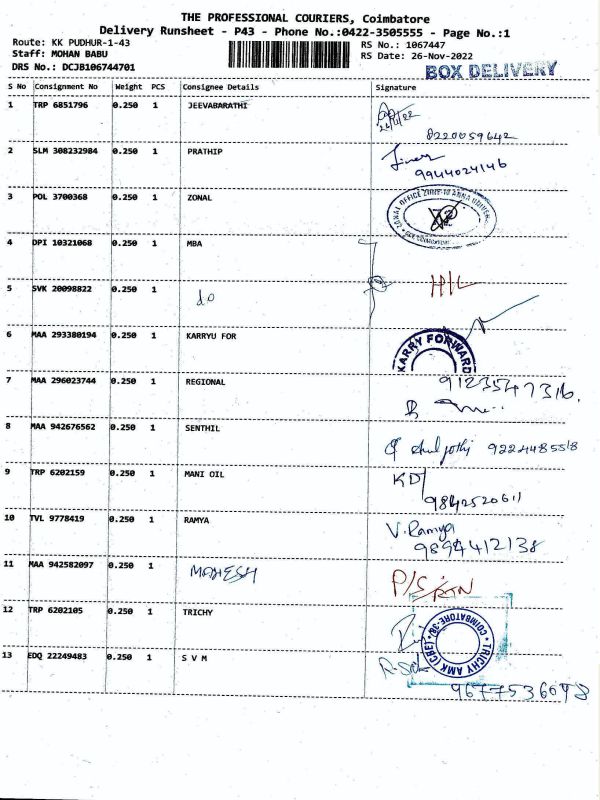 THE PROFESSIONAL COURIERS, Coimbatore
Delivery Runsheet - P43 - Phone No.:0422-3505555 - Page No.:1
Route: KK PUDHUR-1-43
Staff: MOHAN BABU
DRS No.: DCJB106744701
RS No.: 1067447
RS Date: 26-Nov-2022
BOX DELIVERY
S No Consignment No Weight PCS Consignee Details Signature
1 TRP 6851796 0.250 1 JEEVABARATHI
8220059642
2 SLM 308232984 0.250 1 PRATHIP
9944024146
3 POL 3700368 0.250 1 ZONAL
4 DPI 10321068 0.250 1 MBA
5 SVK 20098822 0.250 1 do
6 MAA 293380194 0.250 1 KARRYU FOR
KARRY FORWARD
7 MAA 296023744 0.250 1 REGIONAL
9123547316.
8 MAA 942676562 0.250 1 SENTHIL
9222448558
9 TRP 6202159 0.250 1 MANI OIL
KD
9842520611
10 TVL 9778419 0.250 1 RAMYA V. Ramya
9894412138
11 MAA 942582097 0.250 1 MAHESH
12 TRP 6202105 0.250 1 TRICHY
TRICHY AMK (CBE) COIMBATORE-38
13 EDQ 22249483 0.250 1 S V M
9677536098